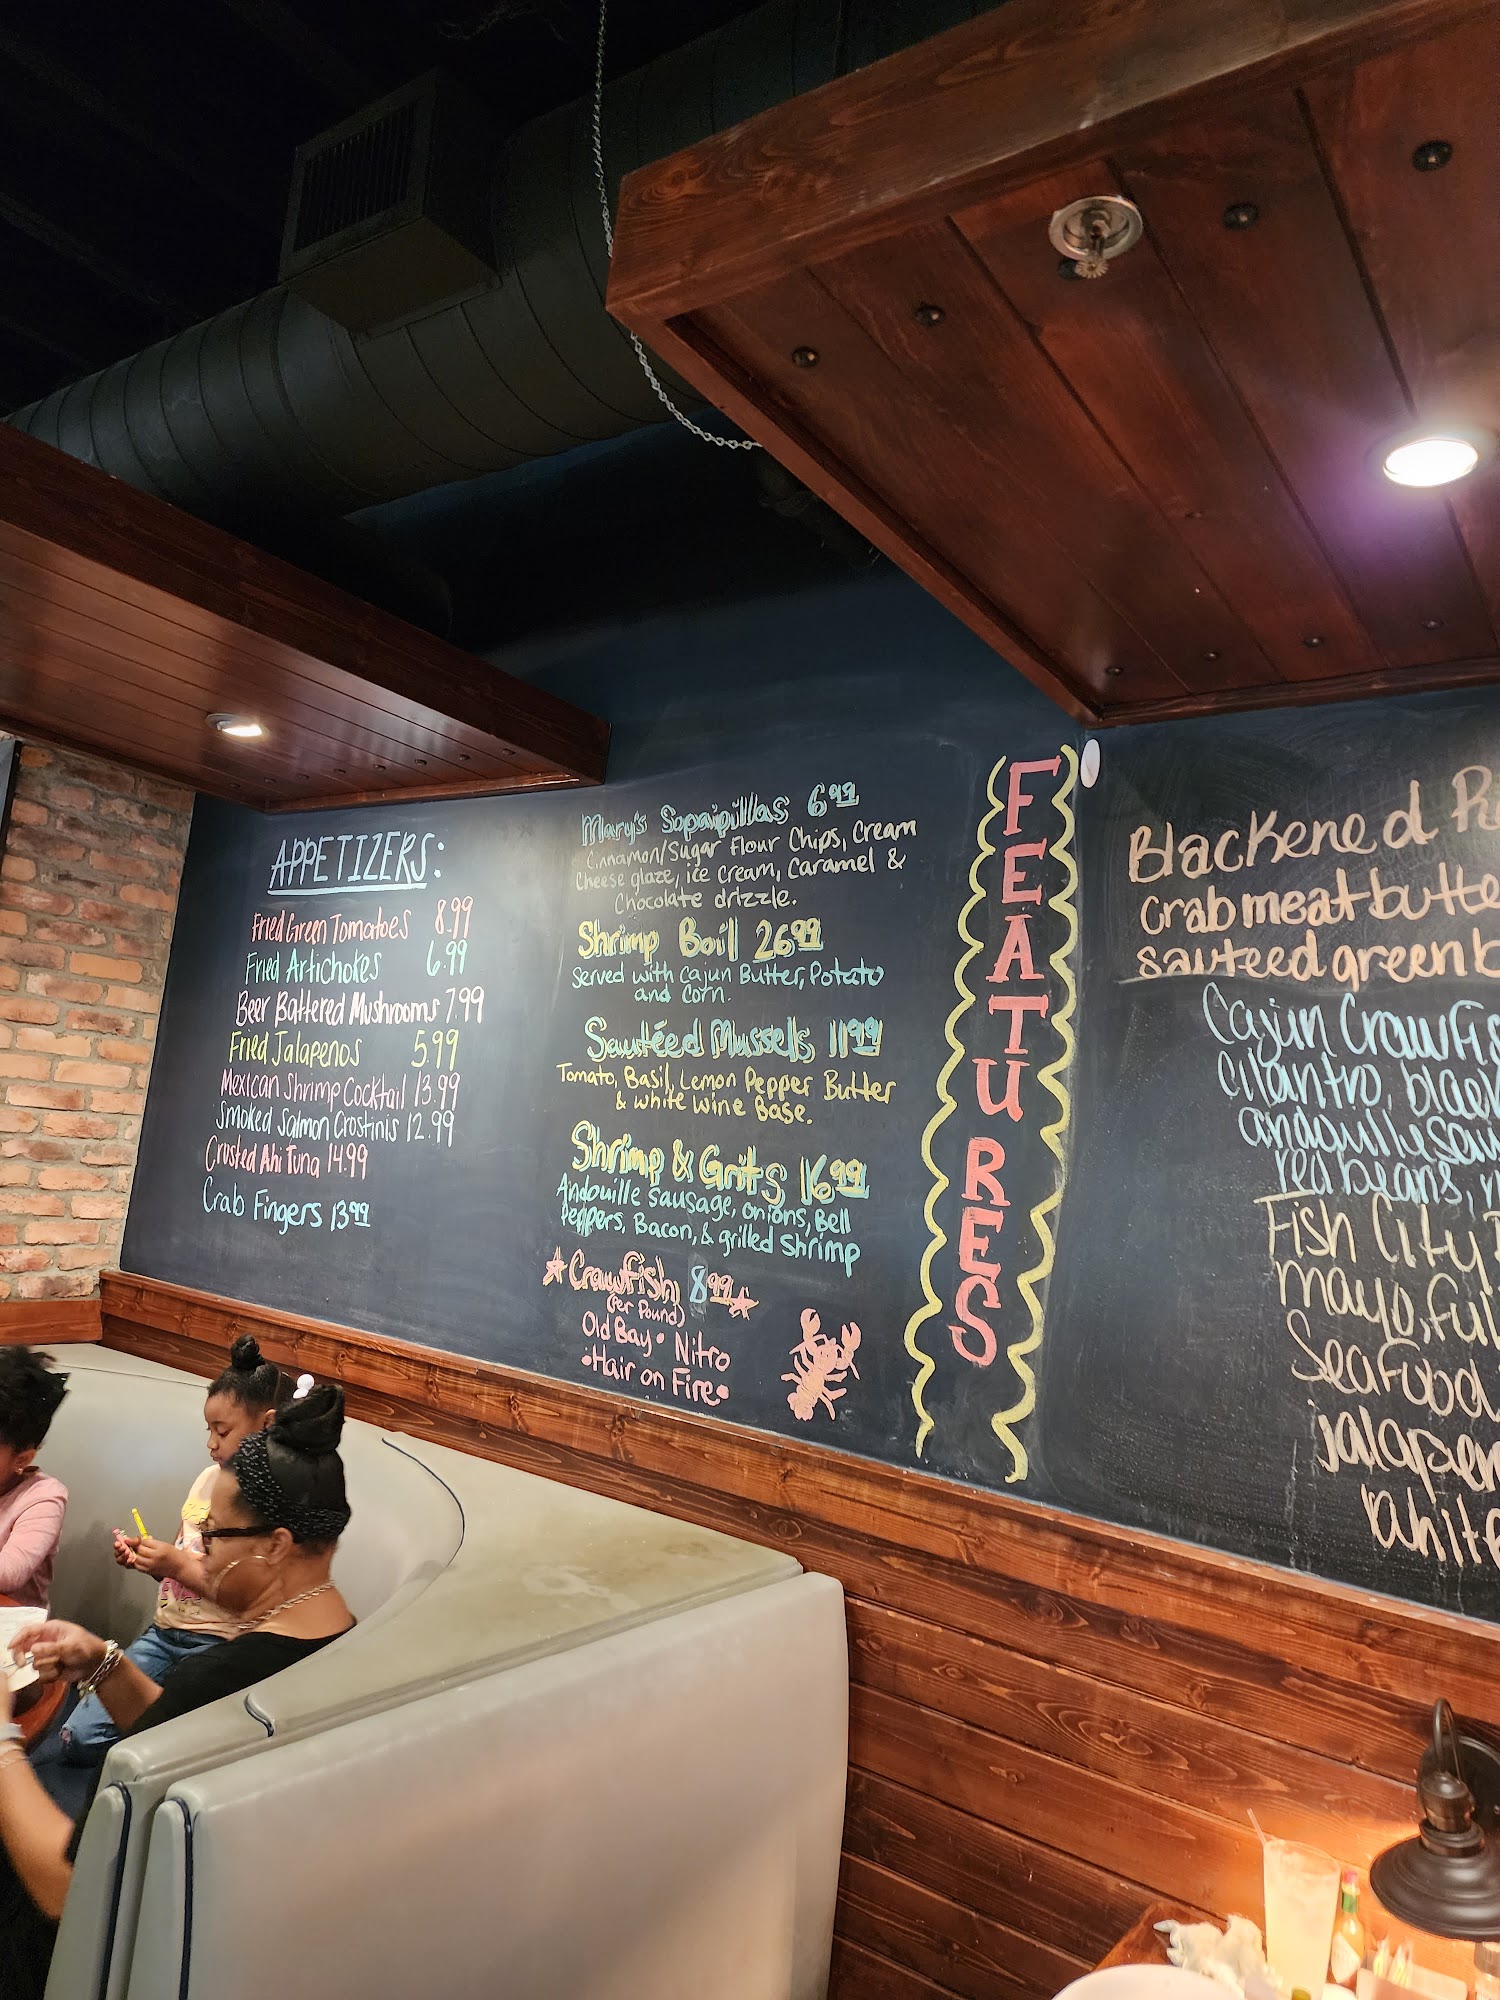 APPETIZERS:
Fried Green Tomatoes 8.99
Fried Artichokes 6.99
Beer Battered Mushrooms 7.99
Fried Jalapenos 5.99
Mexican Shrimp Cocktail 13.99
Smoked Salmon Crostinis 12.99
Crusted Ahi Tuna 14.99
Crab Fingers 13.99
Mary's Sopaipillas 6.99
Cinnamon/Sugar Flour Chips, Cream
Cheese glaze, ice cream, Caramel &
Chocolate drizzle.
Shrimp Boil 26.99
Served with Cajun Butter, Potato
and Corn.
Sautéed Mussels 11.99
Tomato, Basil, Lemon Pepper Butter
& White Wine Base.
Shrimp & Grits 16.99
Andouille sausage, onions, Bell
Peppers, Bacon, & grilled Shrimp
Crawfish 8.99
(Per Pound)
Old Bay • Nitro
• Hair on Fire •
FEATURES
Blackened
Crab meat butte
sauteed green b
Cajun Crawfis
Cilantro, black
andouille sau
red beans,
Fish City
mayo, ful
Seafood
jalapen
White